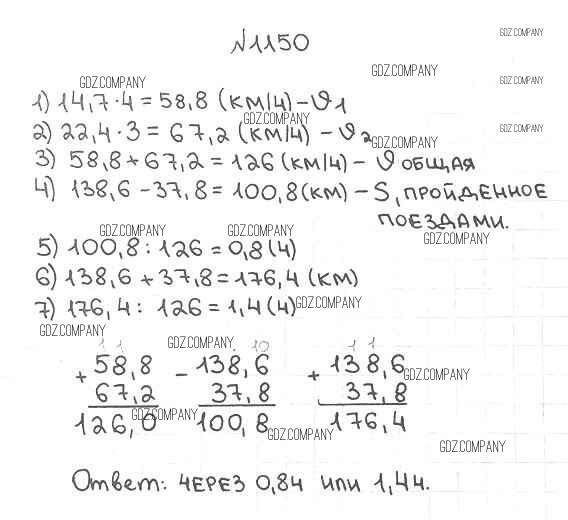 N1150
GDZ.COMPANY
GDZ.COMPANY
GDZ.COMPANY
GDZ.COMPANY
1) 14,7·4=58,8 (КМ/Ч)-V1
GDZ.COMPANY
2) 22,4·3=67,2(КМ/Ч) - V2
GDZ.COMPANY
GDZ.COMPANY
3) 58,8+67,2=126(КМ/Ч)- V ОБЩАЯ
4) 138,6-37,8=100,8(КМ)-S, ПРОЙДЕННОЕ
ПОЕЗДАМИ.
GDZ.COMPANY
GDZ.COMPANY
GDZ.COMPANY
5) 100,8:126=0,8(Ч)
6) 138,6+37,8=176,4(КМ)
7) 176,4: 126=1,4(Ч)
GDZ.COMPANY
GDZ.COMPANY
GDZ.COMPANY
1 1 10 1 1
58,8 138,6 138,6
+ - +
GDZ.COMPANY
67,2 37,8 37,8
GDZ.COMPANY
126,0 100,8 176,4
GDZ.COMPANY
GDZ.COMPANY
Ответ: ЧЕРЕЗ 0,8Ч ИЛИ 1,4Ч.